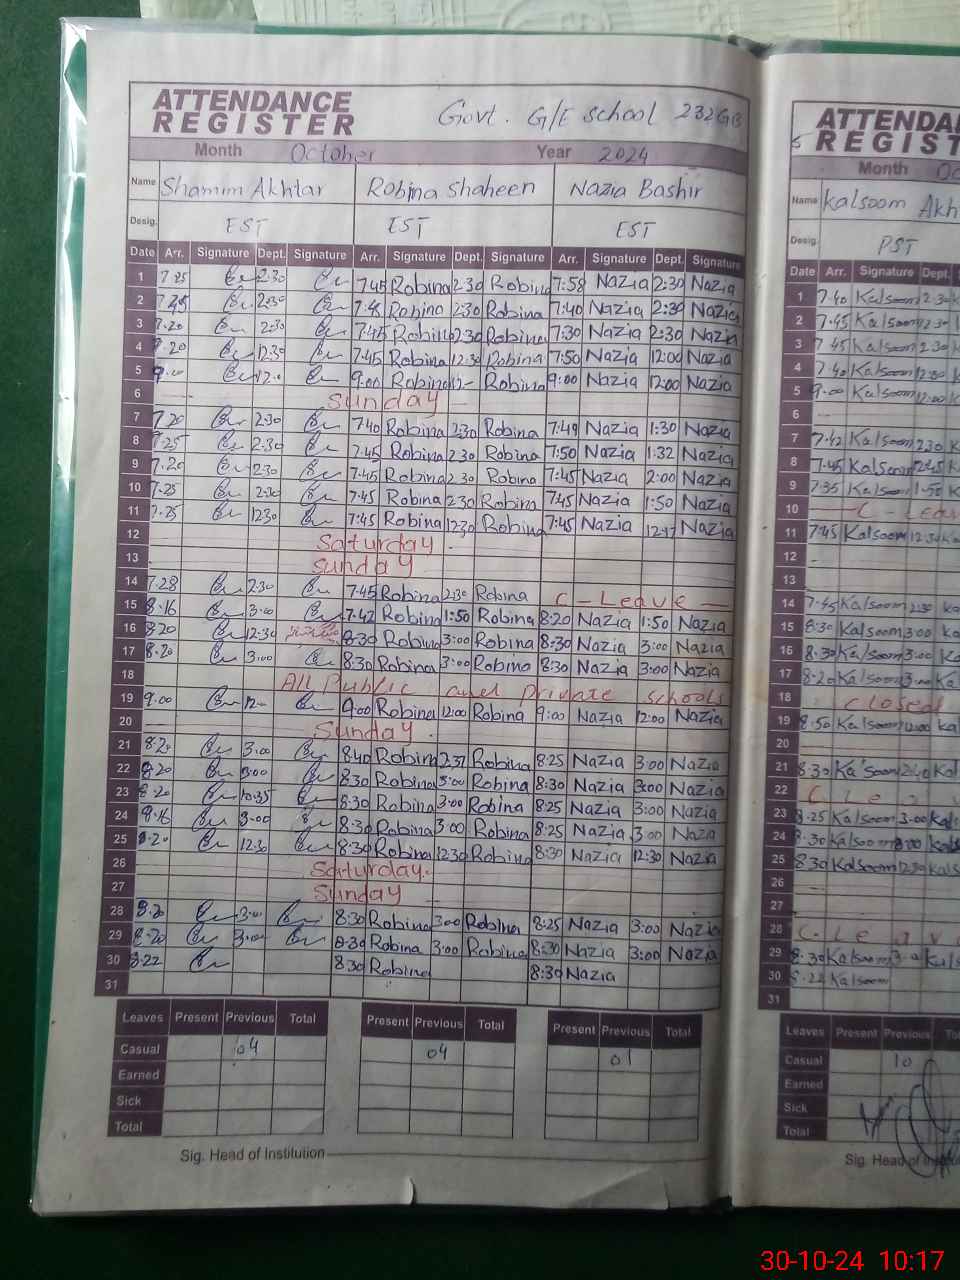 ATTENDANCE REGISTER
Govt. G/E School 232GB
Month October Year 2024
Name Shamim Akhtar Robina Shaheen Nazia Bashir
Desig. EST EST EST
Date Arr. Signature Dept. Signature Arr. Signature Dept. Signature Arr. Signature Dept. Signature
1 7.25 2:30 7:45 Robina 2:30 Robina 7:58 Nazia 2:30 Nazia
2 2:30 Robina 2:30 Robina 7:40 Nazia 2:30 Nazia
3 7.20 2:30 7:45 Robina 2:30 Robina 7:30 Nazia 2:30 Nazia
4 7.20 12:30 7:45 Robina 12:30 Robina 7:50 Nazia 12:00 Nazia
5 9.00 12.0 9:00 Robina 12- Robina 9:00 Nazia 12:00 Nazia
6 Sunday
7 7.20 2:30 7:40 Robina 2:30 Robina 7:49 Nazia 1:30 Nazia
8 7.25 2:30 7:45 Robina 2:30 Robina 7:50 Nazia 1:32 Nazia
9 7.20 2:30 7:45 Robina 2:30 Robina 7:45 Nazia 2:00 Nazia
10 7.25 2:30 7:45 Robina 2:30 Robina 7:45 Nazia 1:50 Nazia
11 7.25 12:30 7:45 Robina 12:30 Robina 7:45 Nazia 12:17 Nazia
12 Saturday
13 Sunday
14 7.28 2:30 7:45 Robina 2:30 Robina C-Leave
15 8.16 3:00 7:42 Robina 1:50 Robina 8:20 Nazia 1:50 Nazia
16 8.20 12:30 8:30 Robina 3:00 Robina 8:30 Nazia 3:00 Nazia
17 8.20 3:00 8:30 Robina 3:00 Robina 8:30 Nazia 3:00 Nazia
18 All Public and private schools
19 9.00 12- 9:00 Robina 12:00 Robina 9:00 Nazia 12:00 Nazia
20 Sunday
21 8.20 3:00 8:40 Robina 2:37 Robina 8:25 Nazia 3:00 Nazia
22 8.20 3:00 8:30 Robina 3:00 Robina 8:30 Nazia 3:00 Nazia
23 8.20 10:35 8:30 Robina 3:00 Robina 8:25 Nazia 3:00 Nazia
24 8.16 3:00 8:30 Robina 3:00 Robina 8:25 Nazia 3:00 Nazia
25 8.20 12:30 8:30 Robina 12:30 Robina 8:30 Nazia 12:30 Nazia
26 Saturday.
27 Sunday
28 8.20 3:00 8:30 Robina 3:00 Robina 8:25 Nazia 3:00 Nazia
29 8.20 3:00 8:30 Robina 3:00 Robina 8:30 Nazia 3:00 Nazia
30 8.22 8:30 Robina 8:30 Nazia
31
Leaves Present Previous Total Present Previous Total Present Previous Total
Casual 04 04 01
Earned
Sick
Total
Sig. Head of Institution
5 REGISTER
Month
Name Kalsoom
Desig. PST
Date Arr. Signature Dept.
1 7.40 Kalsoom 2:30
2 7.45 Kalsoom 2:30
3 7.45 Kalsoom 2:30
4 7.40 Kalsoom 12:00
5 9.00 Kalsoom 12:00
6
7 7.42 Kalsoom 2:30
8 7.45 Kalsoom 2:45
9 7:35 Kalsoom 1:50
10 C-Leav
11 7:45 Kalsoom 12:30
12
13
14 7.45 Kalsoom 2:30
15 8:30 Kalsoom 3:00
16 8.30 Kalsoom 3:00
17 8.20 Kalsoom 3:00
18 closed
19 8.50 Kalsoom 12:00
20
21 8.30 Kalsoom 2:40
22 C Lea
23 8.25 Kalsoom 3:00
24 8.30 Kalsoom 3:00
25 8:30 Kalsoom 12:30
26
27
28 C. Leav
29 8.30 Kalsoom 3.0
30 8.22 Kalsoom
31
Leaves Present Previous
Casual 10
Earned
Sick
Total
Sig. Head of
30-10-24 10:17